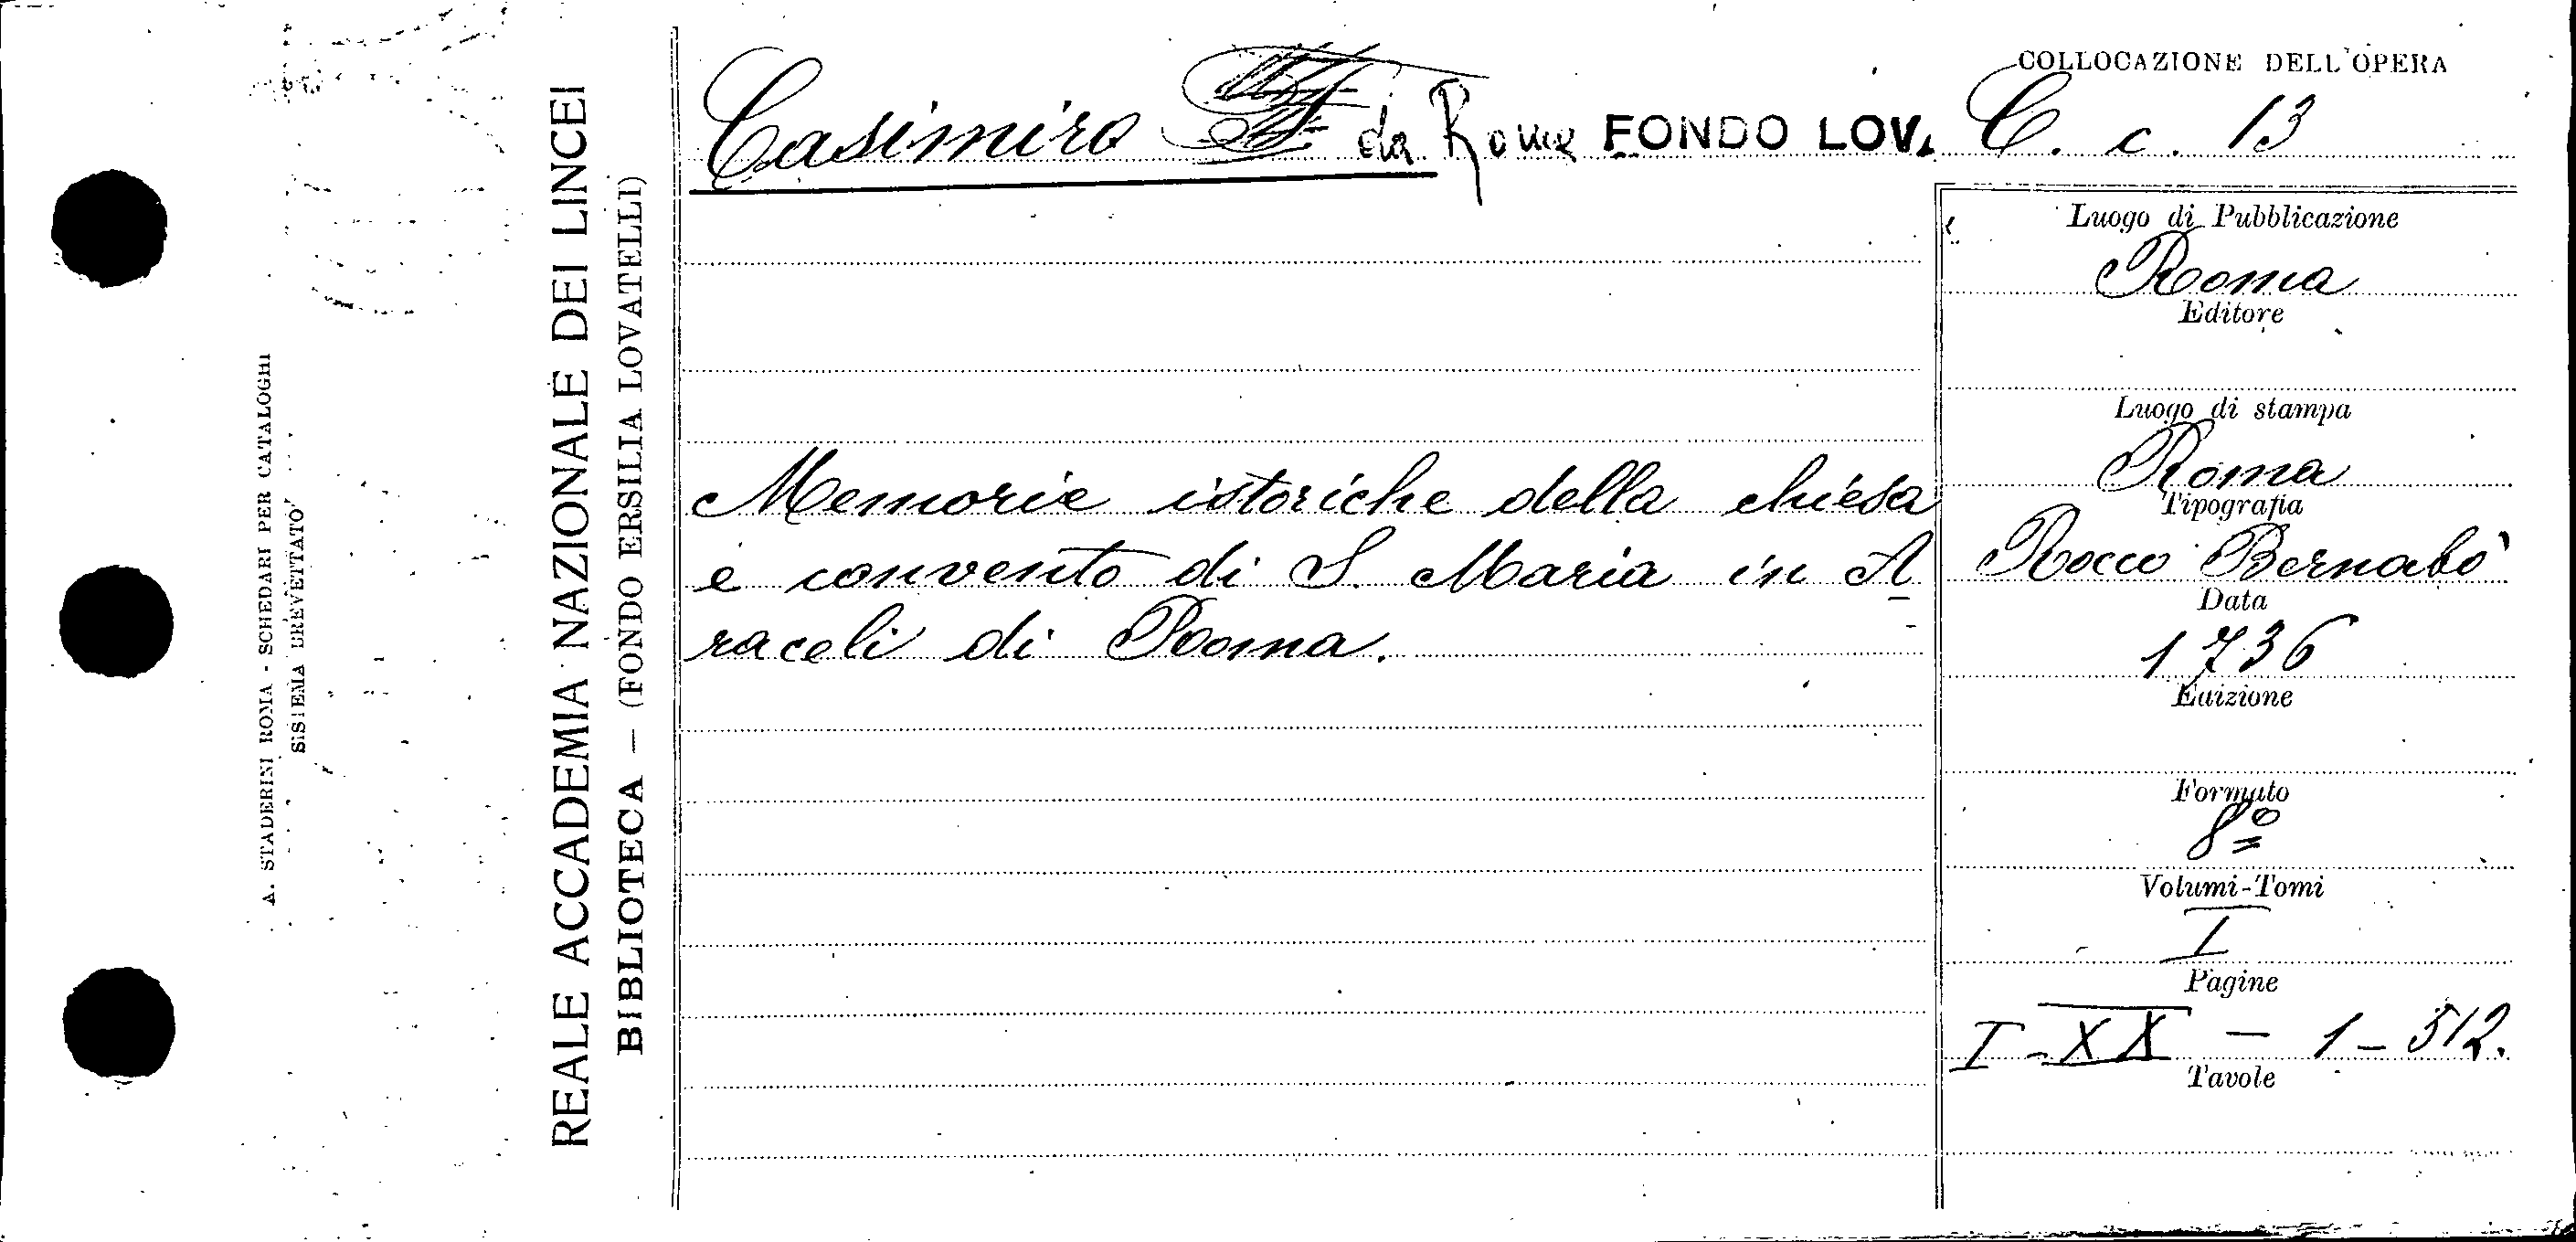 A. STADERINI ROMA - SCHEDARI PER CATALOGHI
SISTEMA BREVETTATO
REALE ACCADEMIA NAZIONALE DEI LINCEI
BIBLIOTECA — (FONDO ERSILIA LOVATELLI)
Casimiro da Roma FONDO LOV.
Memorie istoriche della chiesa
e convento di S. Maria in A
raceli di Roma.
COLLOCAZIONE DELL'OPERA
C. c. 13
Luogo di Pubblicazione
Roma
Editore
Luogo di stampa
Roma
Tipografia
Rocco Bernabò
Data
1736
Edizione
Formato
8º
Volumi-Tomi
I
Pagine
I-XX — 1-512.
Tavole